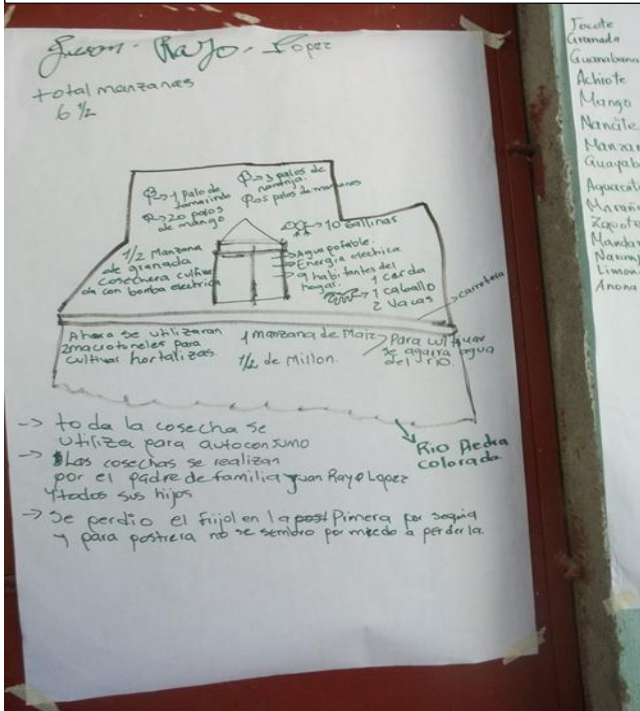 Juan Rayo Lopez
total manzanas
6 1/2
1 Palo de
tamarindo
20 palos
de mango
3 palos de
naranja.
5 palos de manzanas
10 Gallinas
1/2 Manzana
de granada
cosechera cultiva
da con bomba electrica
Agua potable.
Energia electrica
9 habitantes del
hogar.
1 Cerda
1 caballo
2 Vacas
carretera
Ahora se utilizaran
2 macrotuneles para
cultivar hortalizas.
1 manzana de Maiz
1/2 de Millon.
Para cultivar
se agarra agua
del rio.
Rio Piedra
colorada.
-> toda la cosecha se
utiliza para autoconsumo
-> Las cosechas se realizan
por el padre de familia Juan Rayo Lopez
y todos sus hijos
-> Se perdio el frijol en la post Pimera por sequia
y para postrera no se sembro por miedo a perderla.
Jocote
Granada
Guanabana
Achiote
Mango
Nancite
Aguacate
Limon
Anona